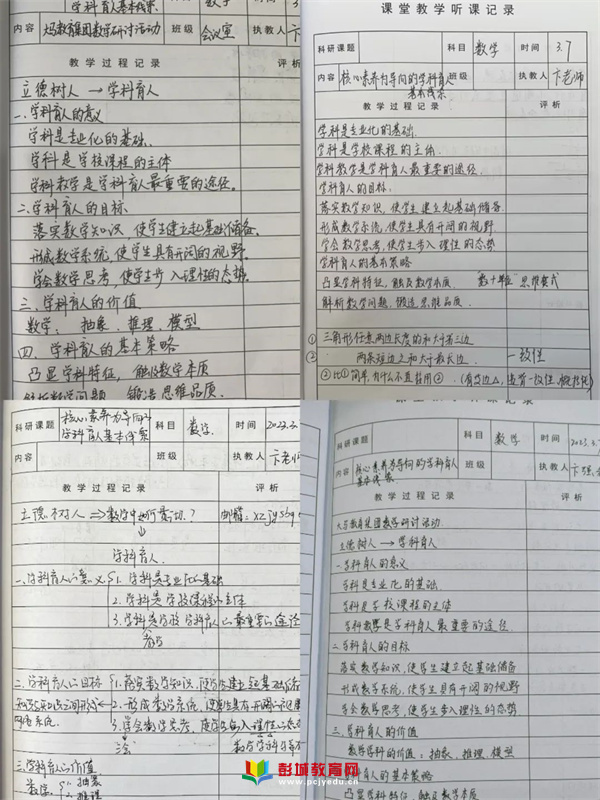 学科育人基本线索
数学
内容
大马教育集团数学研讨活动
班级
会议室
执教人
卞
教 学 过 程 记 录
评 析
立德树人 → 学科育人
一.学科育人的意义
学科是专业化的基础.
学科是学校课程的主体
学科教学是学科育人最重要的途径.
二.学科育人的目标
落实数学知识,使学生建立起基础储备.
形成数学系统,使学生具有开阔的视野.
学会数学思考,使学生步入理性的态势.
三.学科育人的价值
数学: 抽象.推理.模型
四.学科育人的基本策略
凸显学科特征,触及数学本质
解析数学问题 锻造思维品质.
课 堂 教 学 听 课 记 录
科研课题
科目
数学
时间
3.7
内容
核心素养为导向的学科育人
基本线索
班级
执教人
卞老师
教 学 过 程 记 录
评 析
学科是专业化的基础.
学科是学校课程的主体.
学科教学是学科育人最重要的途径.
学科育人的目标:
落实数学知识,使学生建立起基础储备.
形成数学系统,使学生具有开阔的视野.
学会数学思考,使学生步入理性的态势
学科育人的基本策略
凸显学科特征,触及数学本质. "数+单位"思维模式
解析数学问题,锻造思维品质.
① 三角形任意两边长度的和大于第三边
② 两条短边之和大于最长边. 一致性
②比①简单,为什么不直接用②.
科研课题
核心素养为导向的
学科育人基本线索
科目
数学
时间
2023.3.
内容
班级
执教人
卞老师
教 学 过 程 记 录
评 析
立德树人 ⇒数学中如何贯彻?
邮箱:xzjysbg
学科育人.
一.学科育人的意义 1. 学科是专业化的基础
2. 学科是学校课程的主体
3. 学科教学是学科育人的最重要的途径
二.学科育人的目标 1.落实数学知识,使学生建立起基础储备
2. 形成数学系统,使学生具有开阔的视野
3.学会数学思考,使学生步入理性的态势
三.学科育人的价值
数学 抽象
推理
课 堂 教 学 听 课 记 录
科研课题
科目
数学
时间
2023.3.7
内容
核心素养为导向的学科育人
基本线索
班级
执教人
教 学 过 程 记 录
评 析
大马教育集团数学研讨活动
立德树人 → 学科育人
一.学科育人的意义
学科是专业化的基础.
学科是学校课程的主体
学科教学是学科育人最重要的途径.
二.学科育人的目标
落实数学知识,使学生建立起基础储备
形成数学系统,使学生具有开阔的视野
学会数学思考,使学生步入理性的态势
三.学科育人的价值
数学学科的价值:抽象、推理、模型
育人的基本策略
凸显学科特征,触及数学本质
彭城教育网
www.pcjyedu.com